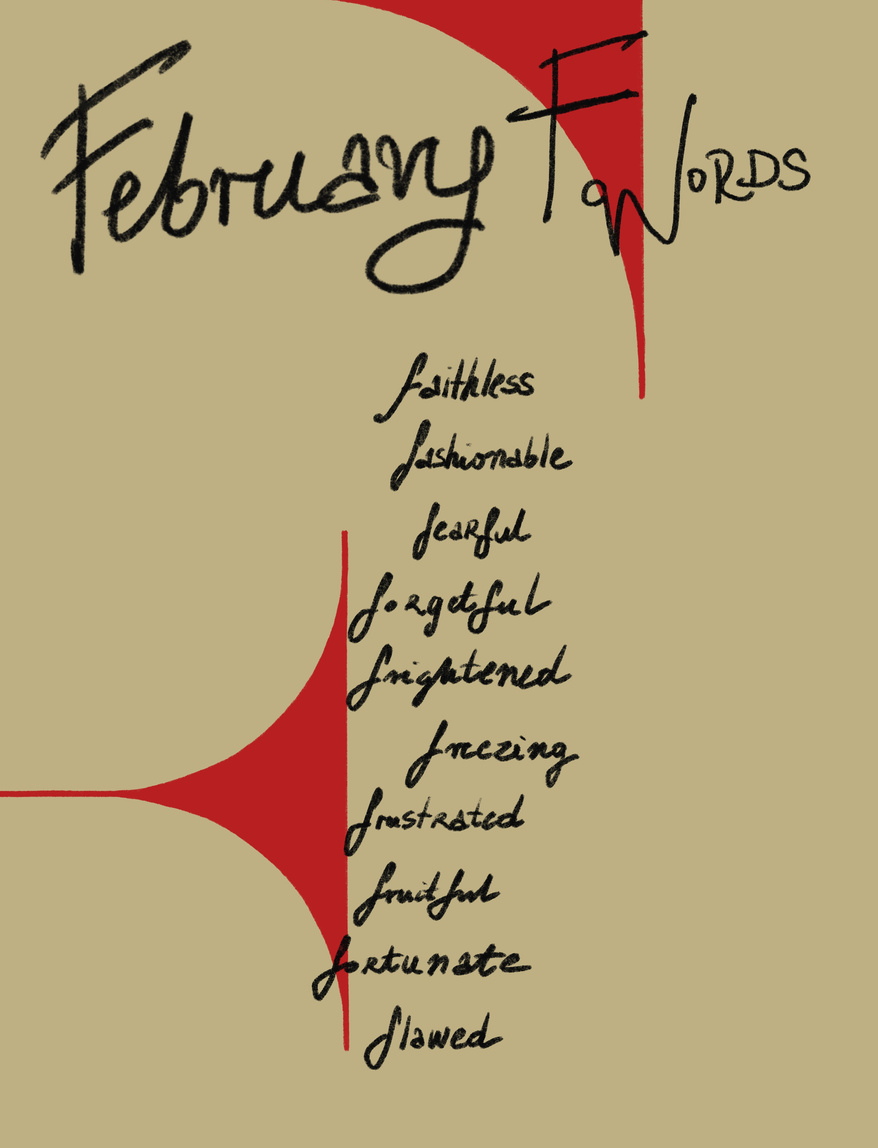 February F Words
faithless
fashionable
fearful
forgetful
frightened
freezing
frustrated
fruitful
fortunate
flawed